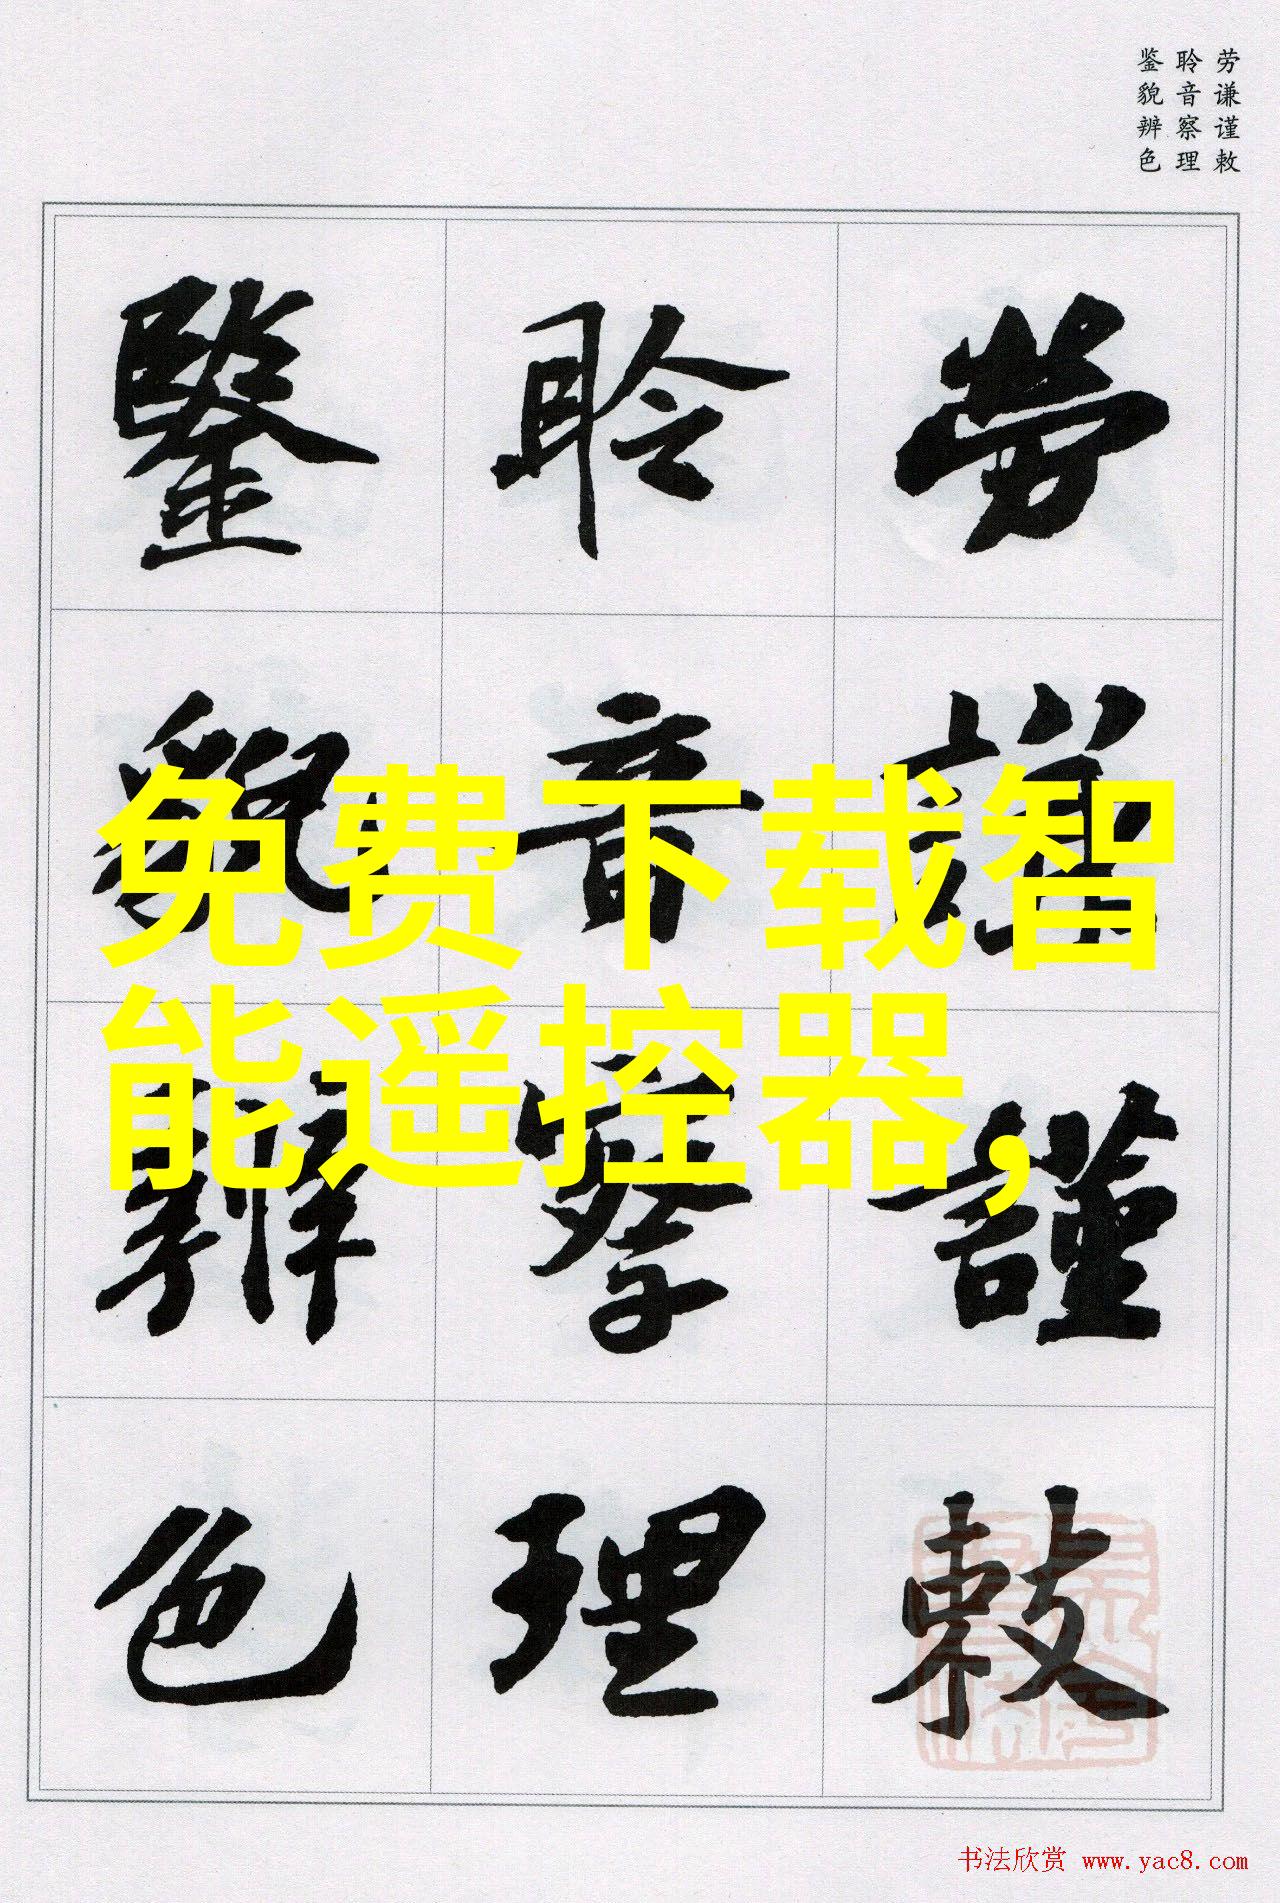 劳谦谨敕
聆音察理
鉴貌辨色
劳谦谨敕
聆音察理
鉴貌辨色
免费下载智
能遥控器,
书法欣赏 www.yac8.com